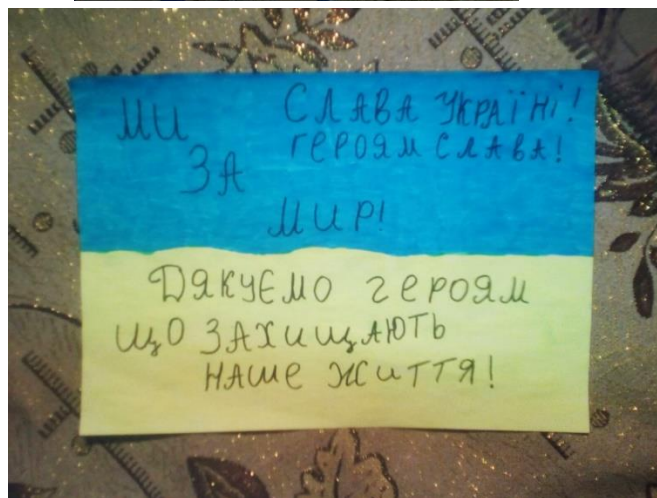 МИ
ЗА
МИР!
СЛАВА УКРАЇНІ!
ГЕРОЯМ СЛАВА!
ДЯКУЄМО ГЕРОЯМ
ЩО ЗАХИЩАЮТЬ
НАШЕ ЖИТТЯ!